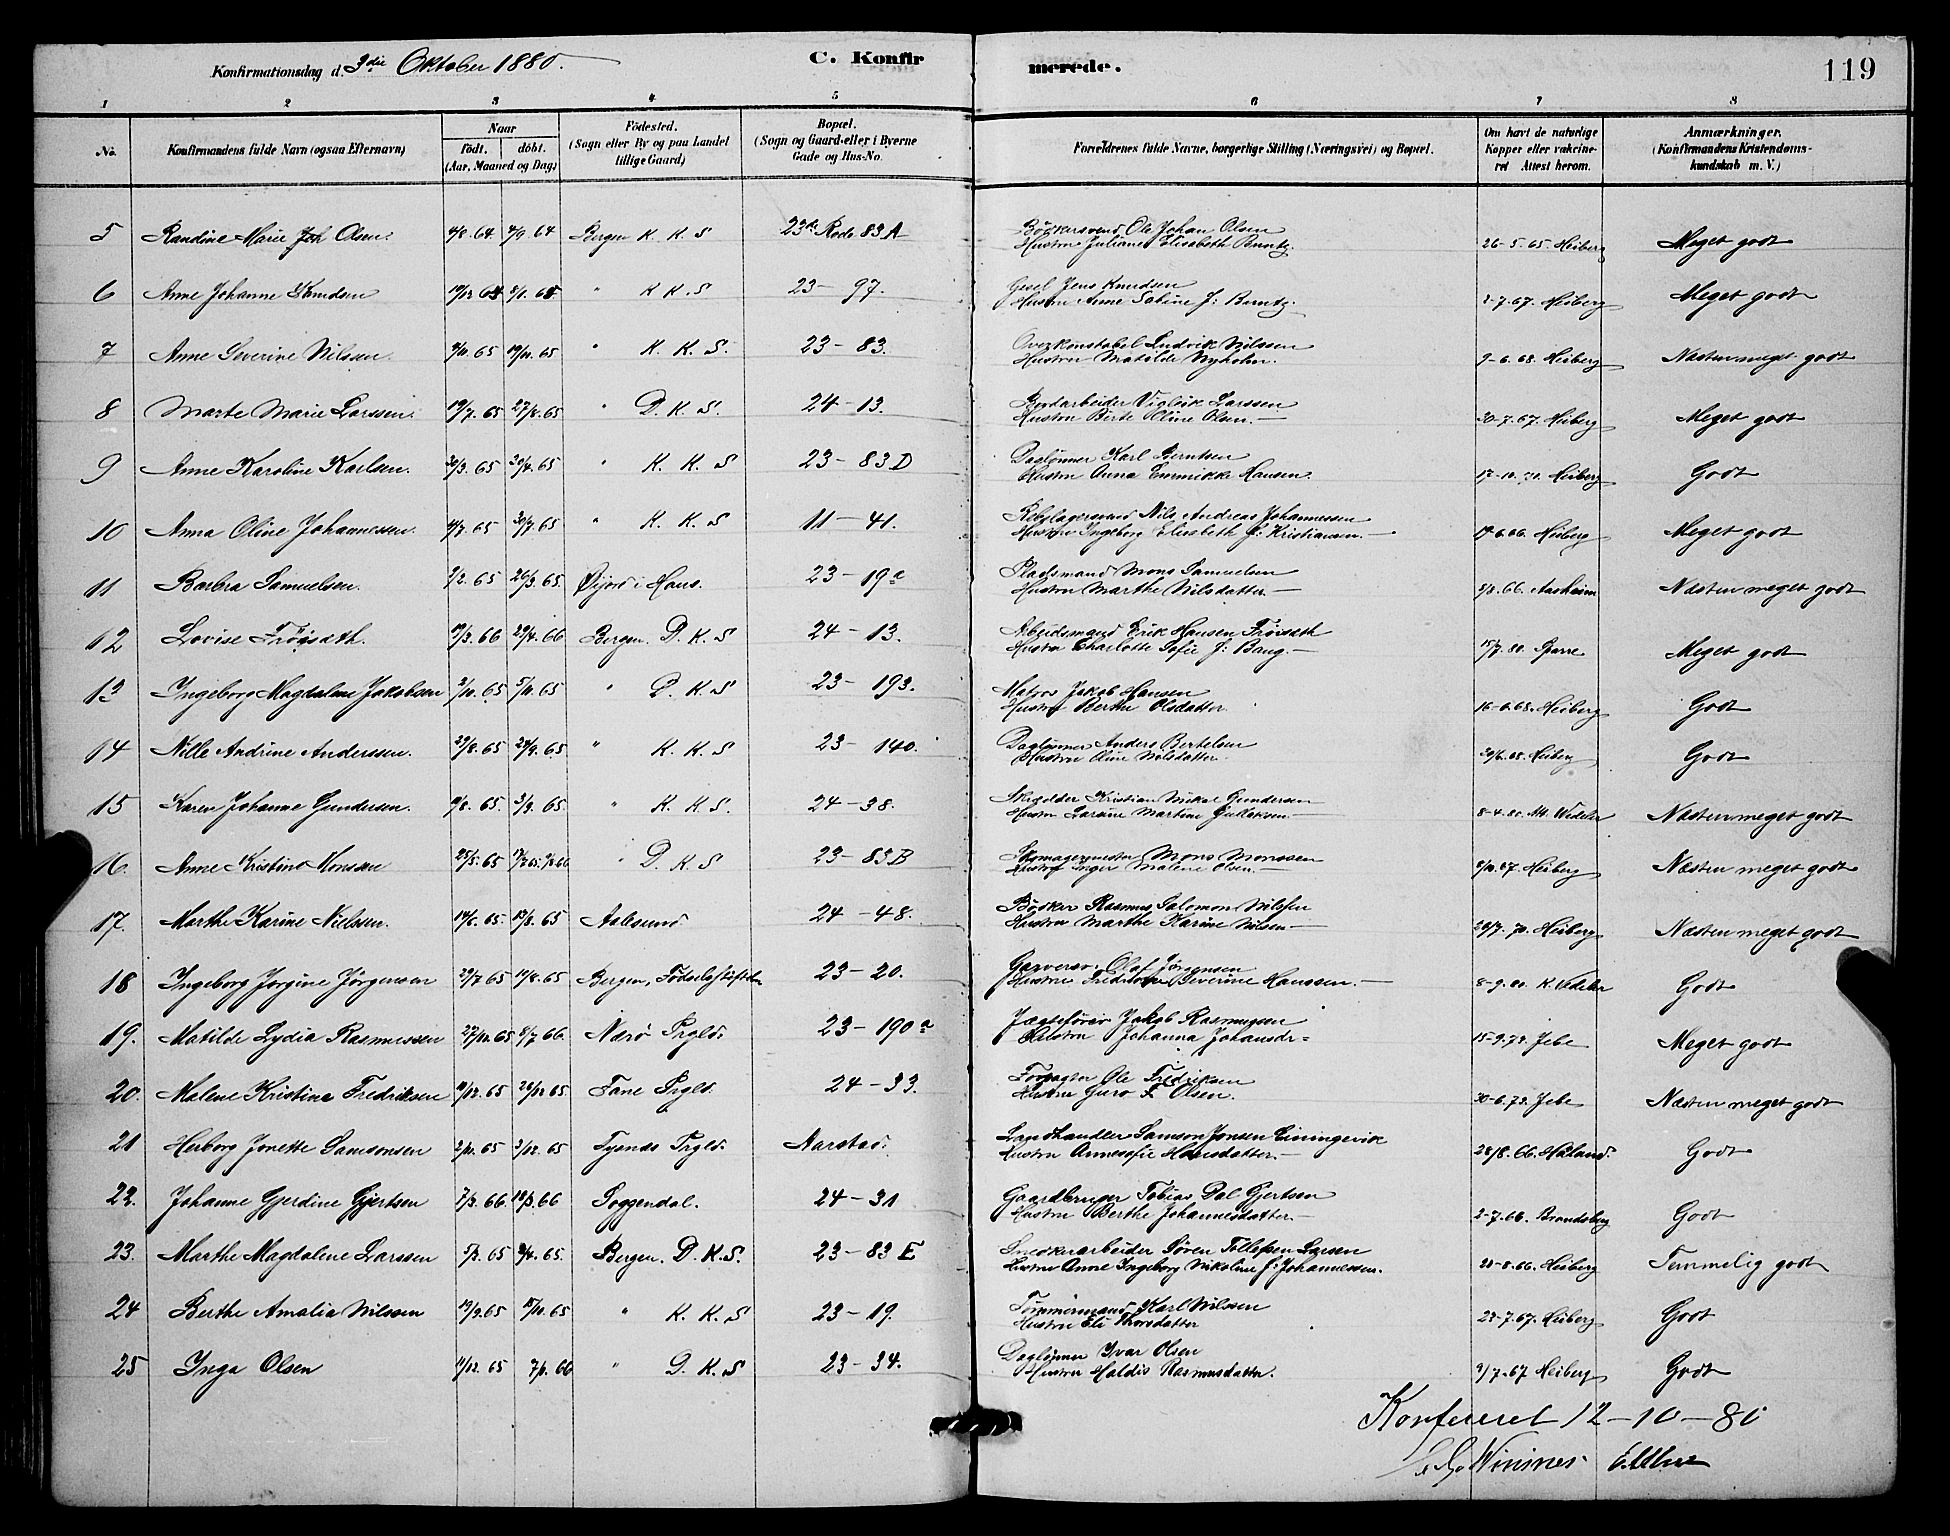 Konfirmationsdag d. 3die Oktober 1880.
C. Konfirmerede.
119
1 2 3 4 5 6 7 8
No. Konfirmandens fulde Navn (ogsaa Efternavn) Naar født. døbt. (Aar, Maaned og Dag) Fødested. (Sogn eller By og paa Landet tillige Gaard) Bopæl. (Sogn og Gaard eller i Byerne Gade og Hus-No. Forældrenes fulde Navne, borgerlige Stilling (Næringsvei) og Bopæl. Om havt de naturlige Kopper eller vakcineret Attest herom. Anmærkninger. (Konfirmandens Kristendomskundskab m. V.)
5 Randine Marie Joh Olsen. 4/8.64 4/9.64 Bergen K. K. S 23de Rode 83 A Bødkersvend Ole Johan Olsen
Hustru Juliane Elisabeth Berntz 26-5.65. Heiberg Meget godt
6 Anne Johanne Knudsen " K K. S 23 - 97. Gesel Jens Knudsen
Hustru Anne Sabine f: Berntz. 2-7.67. Heiberg Meget godt
7 Anne Severine Nilssen. " K. K. S. 23 - 83. Overkonstabel Ludvik Nilssen
Hustru Matilde Nyholm. 9-6.68. Heiberg Næsten meget godt
8 Marte Marie Larssen. 19/7.65 27/8.65 " D. K. S. 24 - 13. Bordarbeider Viglik Larssen
Hustru Berte Oline Olsen. 30-7.67. Heiberg Meget godt
9 Anne Karoline Karlsen. 30/3.65 30/4.65 " K. K. S 23 - 83 D Dagлønner Karl Berntsen
Hustru Anna Emmikke Hansen. 17-10.71. Heiberg Godt
10 Anna Oline Johannessen. 4/7.65 30/7.65 " K. K. S 11 - 41. Rebslagersvend Nils Andreas Johannessen
Hustru Ingeborg Elisabeth f: Kristiansen. Heiberg Meget godt
11 Barbra Samuelsen. 2/2.65 26/3.65 i Haus. 23 - 19a Pladsmand Mons Samuelsen
Hustru Marthe Nilsdatter Aasheim Næsten meget godt
12 Lovise Frøisæth. 19/3.66 29/4.66 Bergen. D. K. S 24 - 13. Arbeidsmand Erik Hansen Frøisæth
Hustru Charlotte Sofie f: Bang. 15/7 80. Sparre Meget godt
13 Ingeborg Magdalene Jakobsen " D. K. S 23 - 193. Matros Jakob Hansen
Hustru Berthe Olsdatter 16-6.68. Heiberg Godt
14 Nille Andrine Anderssen. 29/8.65 24/9.65 " K. K. S 23 - 140. Dagлønner Anders Bertelsen
Hustru Oline Nilsdatter. Heiberg Godt
15 Karen Johanne Gundersen. 9/8.65 3/9.65 " K. K. S. 24 - 38. Skrædder Kristian Mikal Gundersen
Hustru Martine 8-4.80. Næsten meget godt
16. Anne Kristine Monsen 25/5.65 " D. K. S 23 - 83 B Skomagermester Mons Monssen
Hustru Inger Malene Olsen. Heiberg Næsten meget godt
17. Marthe Karine Nielsen. 19/6.65 13/8.65 Aalesund 24 - 48. Bødker Rasmus Salomon Nilssen
Hustru Marthe Karine Nilsen 29/7.70. Heiberg Næsten meget godt
18 Ingeborg Jørgine Jørgensen 29/7 65 19/8.65 Bergen, Fødselsstiftelse 23 - 20. Garversv. Olaf Jørgensen
Hustru Severine Hanssen. 8-9.80. K. Vedeler Godt
19. Matilde Lydia Rasmussen 27/10.65 8/7 66. Nærø Prgld. 23 - 190a Jægtefører Jakob Rasmussen
Hustru Johanna Johansdr= 15-9.74. Jebe Meget godt
20. Malene Kristine Fredriksen 19/12.65 26/12 65. Fane Prgld. 24 - 33. Forpagter Ole Fredriksen
Hustru Guro F Olsen. 30-6.73. Jebe Næsten meget godt
21 Herborg Jonette Samsonsen 2/11.65 3/12.65 Tysnes Prgld. Aarstad. Landhandler Samson Jonsen Einingevik
Hustru Annesofie Hansdatter 28/8.66. Haaland. Godt
22. Johanne Gjerdine Gjertsen 7/3.66. Soggendal. 24 - 31 Gaardbruger Tobias Dal Gjertsen
Hustru Berthe Johannesdatter. 2-7.66. Brandsberg Godt
23. Marthe Magdalene Larssen Bergen. D. K. S. 23 - 83 E Snedkerarbeider Søren Tollefsen Larsen
Hustru Anne Ingeborg Nikoline f: Johannessen. 28-8.66. Heiberg Temmelig godt
24 Berthe Amalia Nilssen 19/9.65 15/10.65 " K. K. S 23 - 19. Tømmermand Karl Nilssen
Hustru Eli Thorsdatter 23-7.67. Heiberg Godt
25 Inga Olsen 11/12.65 7/1.66 " D. K. S 23 - 34. Dagлønner Ivar Olsen
Hustru Haldis Rasmusdatter. 3/7-67 Heiberg Godt
Konfereret 12-10-80
Winsnes